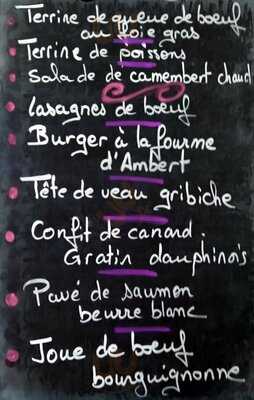 Terrine de queue de boeuf
au foie gras
Terrine de poissons
Salade de camembert chaud
lasagnes de boeuf
Burger à la fourme
d'Ambert
Tête de veau gribiche
Confit de canard.
Gratin dauphinois
Pavé de saumon
beurre blanc
Joue de boeuf
bourguignonne